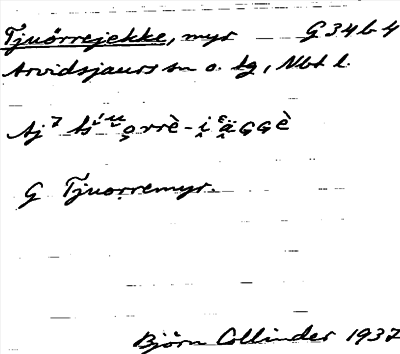 Tjuörrejekke, myr G 34 b 4
Arvidsjaurs sn o. tg, Nbt l.
G Tjuorremyr.
Björn Collinder 1937